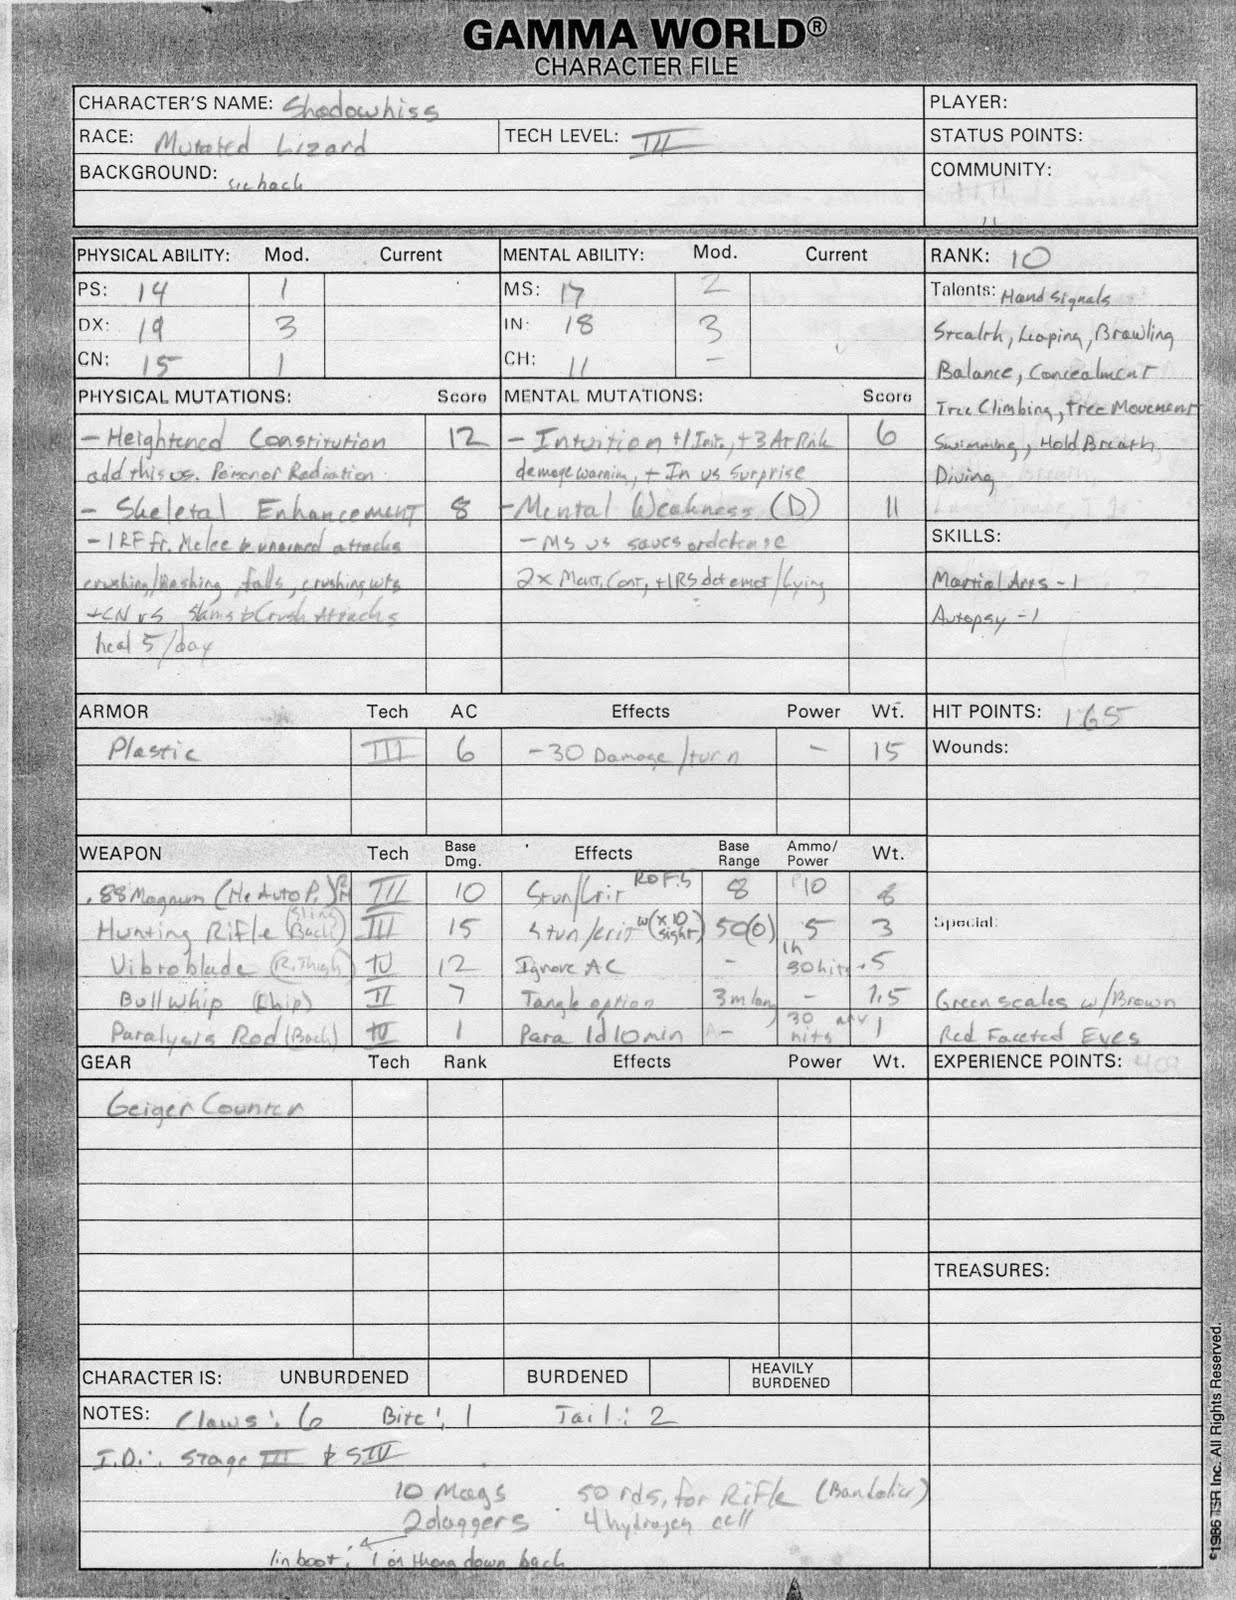 GAMMA WORLD®
CHARACTER FILE
CHARACTER'S NAME: Shadowhiss
PLAYER:
RACE: Mutated Lizard TECH LEVEL: III
STATUS POINTS:
BACKGROUND: see back
COMMUNITY:
PHYSICAL ABILITY: Mod. Current MENTAL ABILITY: Mod. Current RANK: 10
PS: 14 1 MS: 17 2 Talents: Hand Signals
DX: 19 3 IN: 18 3 Stealth, Leaping, Brawling
CN: 15 1 CH: 11 - Balance, Concealment
PHYSICAL MUTATIONS: Score MENTAL MUTATIONS: Score Tree Climbing, Tree Movement
- Heightened Constitution 12 - Intuition +1 Init., +3 At Rink 6 Swimming, Hold Breath,
add this vs. Poison or Radiation damage warning, + In vs Surprise Diving
- Skeletal Enhancement 8 - Mental Weakness (D) 11
SKILLS:
- 1 RF fr. Melee & unarmed attacks - MS vs saves or defense
crushing/ falls, crushing wts 2x Ment. Cont., +1RS det emot/lying Martial Arts - 1
+CN vs Slams & Crush Attacks Autopsy - 1
heal 5/day
ARMOR Tech AC Effects Power Wt. HIT POINTS: 165
Plastic III 6 -30 Damage/turn - 15 Wounds:
WEAPON Tech Base Dmg. Effects Base Range Ammo/Power Wt.
.88 Magnum (He Auto P.) III 10 Stun/Crit ROF.5 8 P10 8
Hunting Rifle (Sling Back) III 15 Stun/crit w(x10 sight) 50(0) 5 3 Special:
Vibroblade (R. Thigh) IV 12 Ignore AC - 1h 30 hits .5
Bullwhip (hip) II 7 Tangle option 3m long - 1.5 Green scales w/Brown
Paralysis Rod (Back) IV 1 Para 1d10min - 30 hits 1 Red Faceted Eyes
GEAR Tech Rank Effects Power Wt. EXPERIENCE POINTS: 409
Geiger Counter
TREASURES:
CHARACTER IS: UNBURDENED BURDENED HEAVILY BURDENED
NOTES: Claws: 6 Bite: 1 Tail: 2
I.D.: Stage III & SIV
10 Mags 50 rds. for Rifle (Bandolier)
2 daggers 4 hydrogen cell
1 in boot, 1 on thong down back
©1986 TSR Inc. All Rights Reserved.